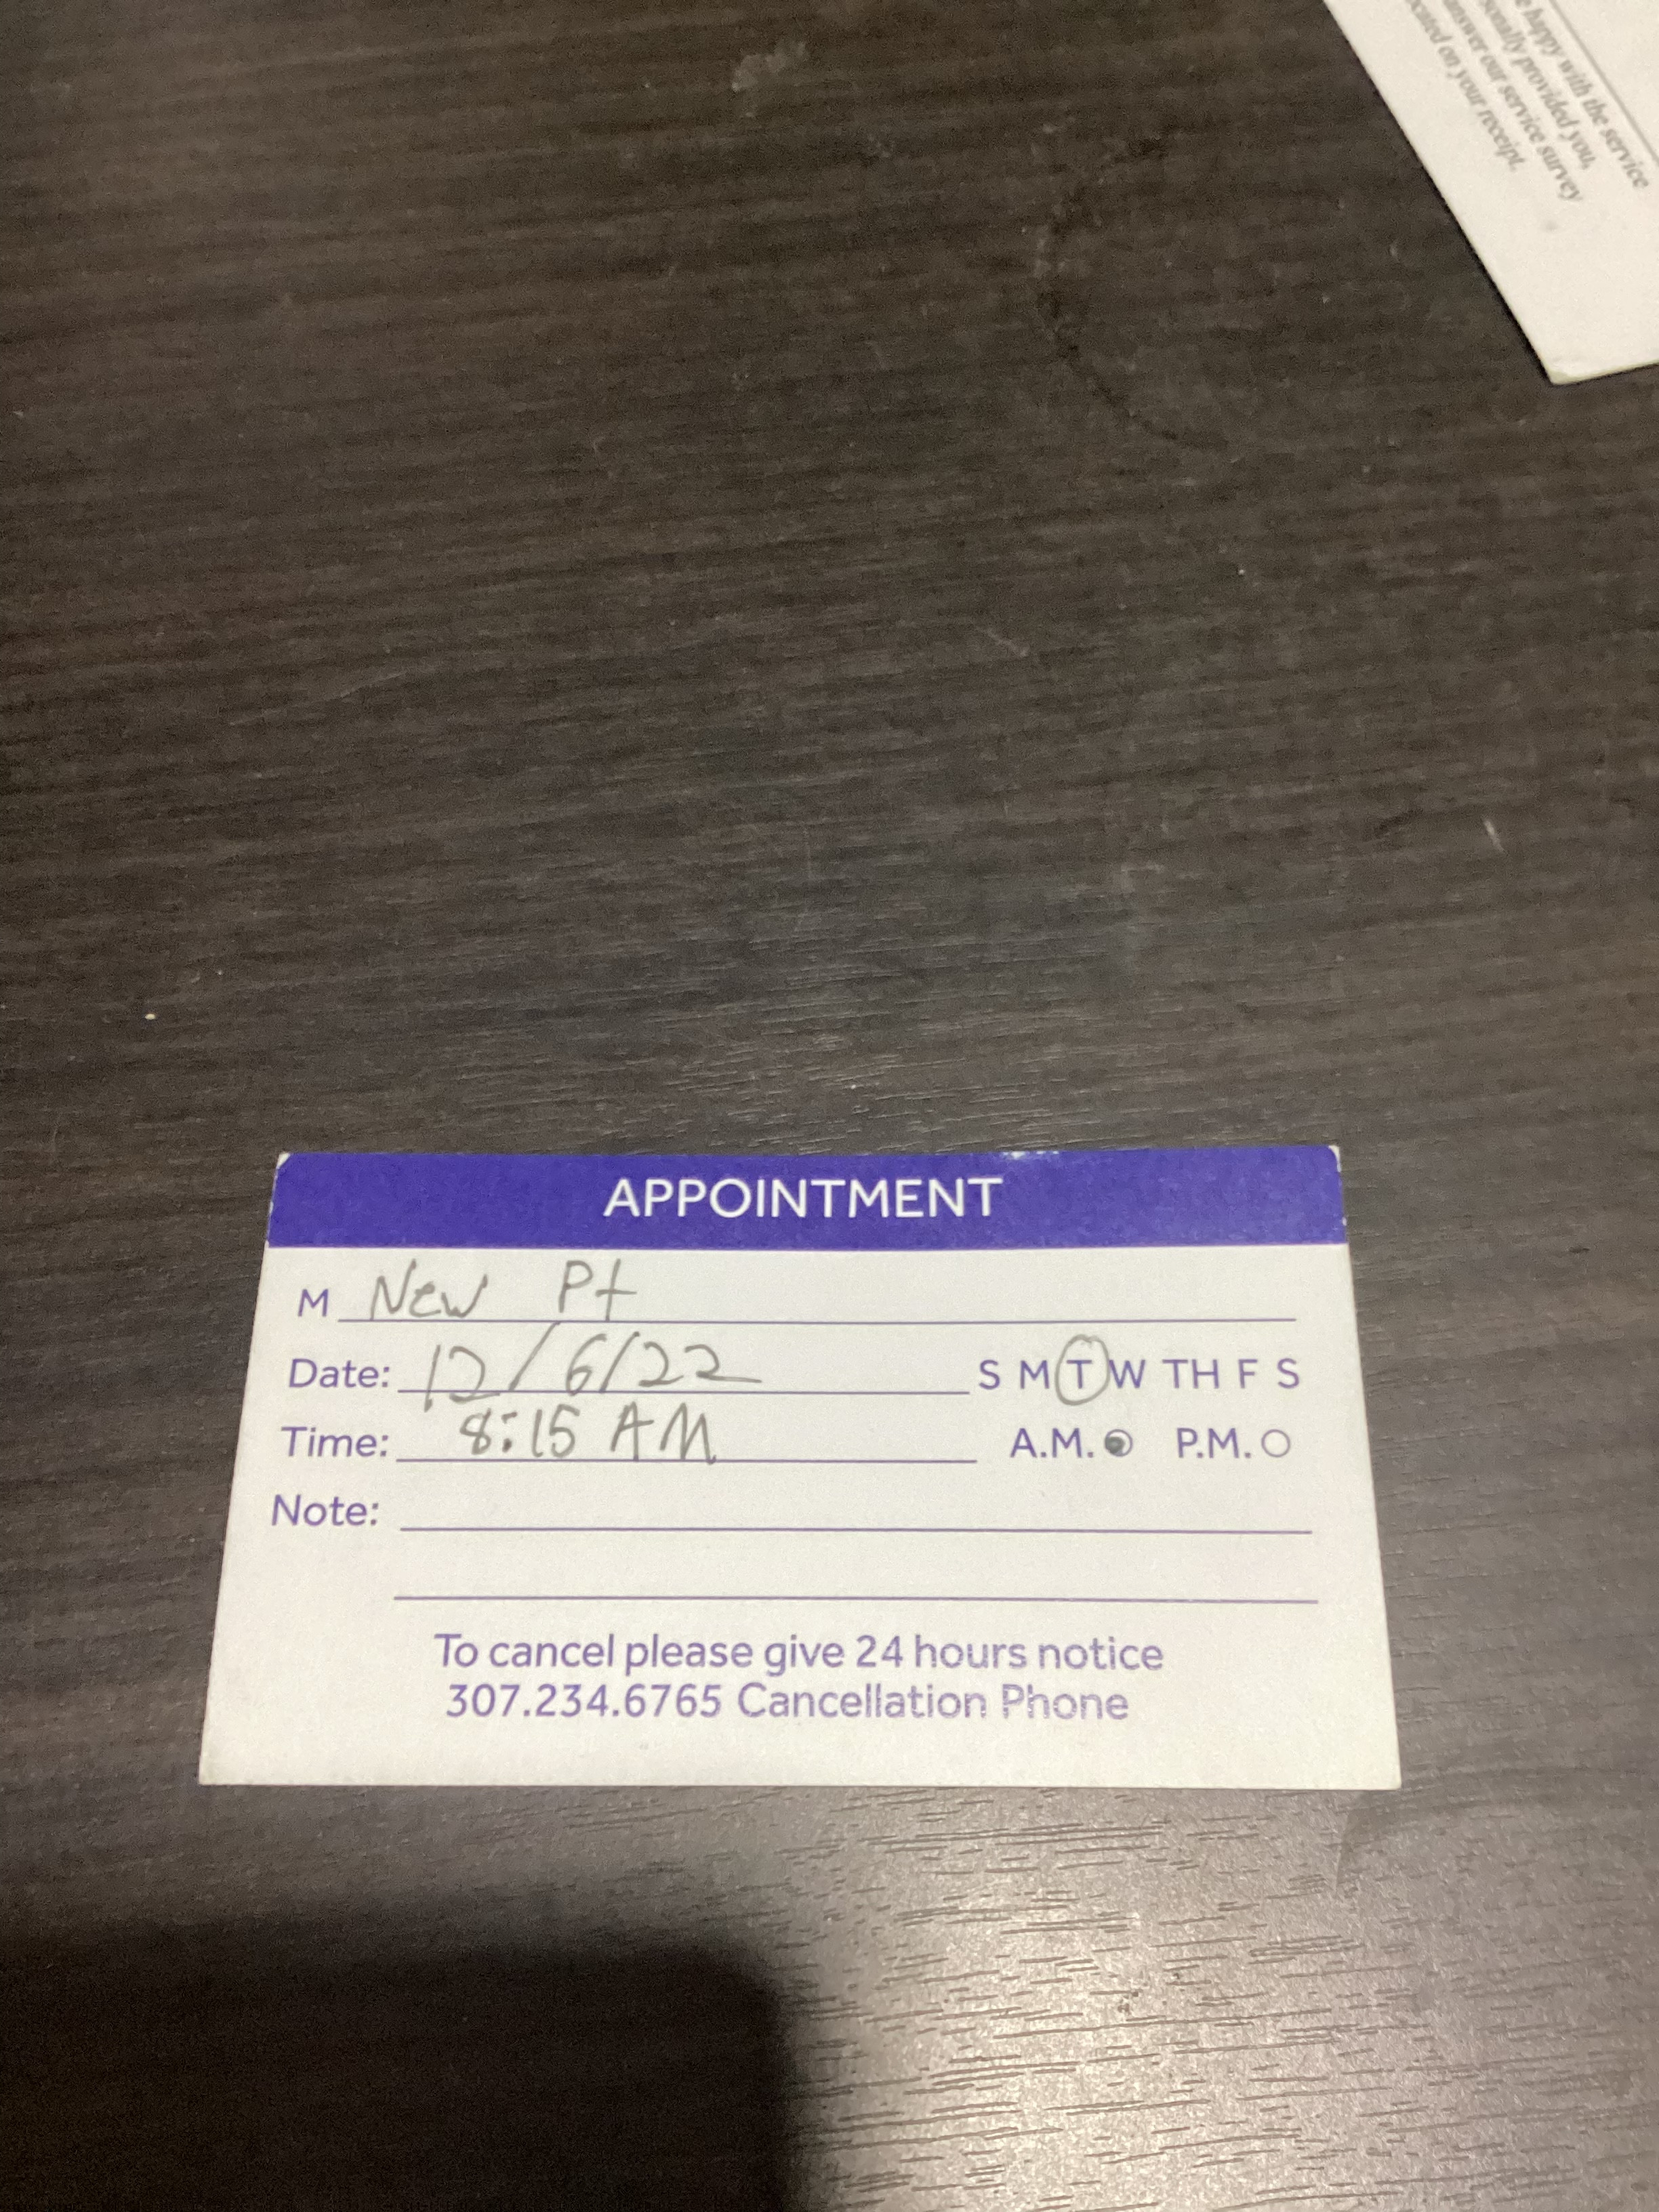 happy with the service
provided you,
answer our service survey
on your receipt.
APPOINTMENT
M New Pt
Date: 12/6/22 S M T W TH F S
Time: 8:15 AM A.M. P.M.
Note:
To cancel please give 24 hours notice
307.234.6765 Cancellation Phone